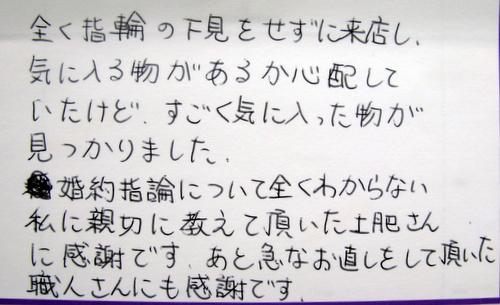 全く指輪の下見をせずに来店し、
気に入る物があるか心配して
いたけど、すごく気に入った物が
見つかりました。
婚約指論について全くわからない
私に親切に教えて頂いた土肥さん
に感謝です。あと急なお直しをして頂いた
職人さんにも感謝です。